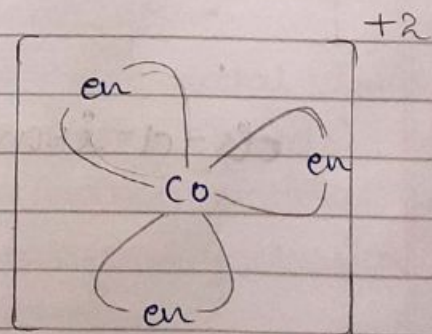 +2
en
en
Co
en